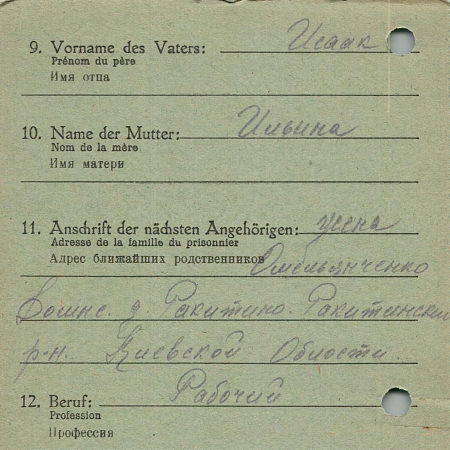 9. Vorname des Vaters: Исаак
Prénom du père
Имя отца
10. Name der Mutter: Ильина
Nom de la mère
Имя матери
11. Anschrift der nächsten Angehörigen: жена
Adresse de la famille du prisonnier
Адрес ближайших родственников Омельянченко
д Ракитино. Ракитинский
р-н. Киевской Области.
12. Beruf: Рабочий
Profession
Профессия